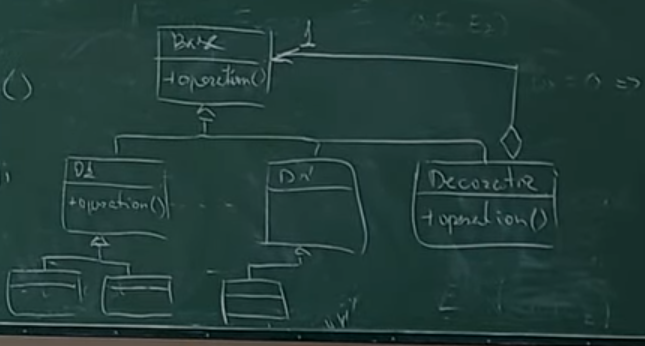 Base 1
+operation()
()
D1
+operation()
DN
Decorator
+operation()
"N"